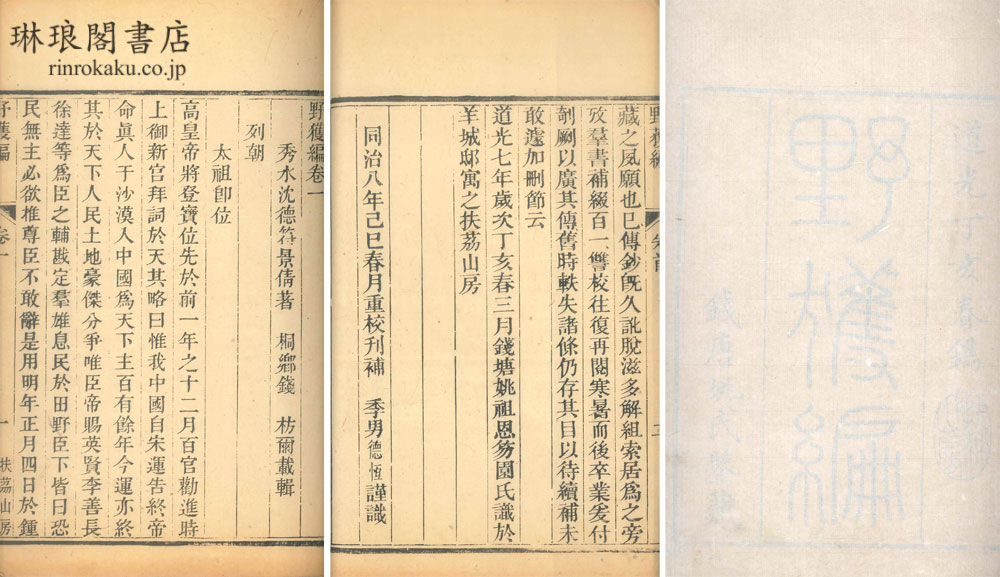 琳琅閣書店
rinrokaku.co.jp
野獲編卷一
秀水沈德符景倩著 桐鄉錢 枋爾載輯
列朝
太祖卽位
高皇帝將登寶位先於前一年之十二月百官勸進時
上御新宮拜詞於天其略曰惟我中國自宋運告終帝
命眞人于沙漠入中國爲天下主百有餘年今運亦終
其於天下人民土地豪傑分爭唯臣帝賜英賢李善長
徐達等爲臣之輔戡定羣雄息民於田野臣下皆曰恐
民無主必欲推尊臣不敢辭是用明年正月四日於鍾
野獲編 卷一 一 扶荔山房
野獲編 卷首 二
藏之夙願也巳傳鈔旣久訛脫滋多解組索居爲之旁
攷羣書補綴百一讐校往復再閱寒暑而後卒業爰付
剞劂以廣其傳舊時軼失諸條仍存其目以待續補未
敢遽加刪節云
道光七年歲次丁亥春三月錢塘姚祖恩笏園氏識於
羊城邸寓之扶荔山房
同治八年己巳春月重校刊補 季男德恆謹識
道光丁亥春鐫
野獲編